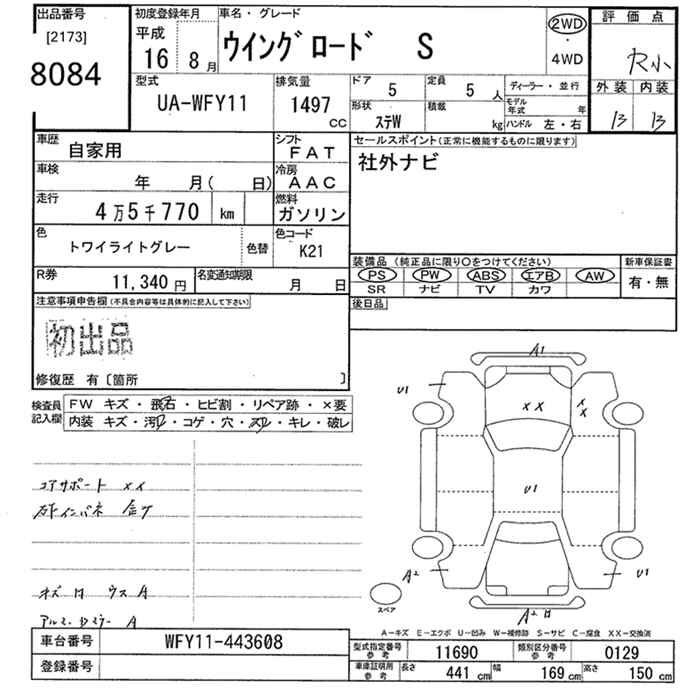 出品番号
[2173]
8084
初度登録年月
平成
16年 8月
車名・グレード
ウイングロード S
2WD
・
4WD
評価点
R小
外装 内装
B B
型式
UA-WFY11
排気量
1497
CC
ドア 5
定員 5 人
形状 ステW
積載 kg
ディーラー・並行
モデル年式 年
ハンドル 左・右
車歴 自家用
シフト FAT
車検 年 月( 日)
冷房 AAC
走行 4万5千770 km
燃料 ガソリン
色 トワイライトグレー
色替
色コード K21
R券 11,340円
名変通知期限 月 日
セールスポイント(正常に機能するものに限ります)
社外ナビ
装備品(純正品に限り○をつけてください)
PS PW ABS エアB AW
SR ナビ TV カワ
新車保証書
有・無
後日品
注意事項申告欄(不具合内容等は具体的に記入して下さい)
初出品
修復歴 有〔箇所 〕
検査員記入欄
FW キズ・飛石・ヒビ割・リペア跡・×要
内装 キズ・汚れ・コゲ・穴・スレ・キレ・破レ
コアサポート
A1
U1
XX
X
X
U1
A2
U1
A2
スペア
A-キズ E-エクボ U-凹み W-補修跡 S-サビ C-腐食 XX-交換済
車台番号 WFY11-443608
登録番号
型式指定番号 参考 11690
類別区分番号 参考 0129
車庫証明用 参考 長さ 441 cm 幅 169 cm 高さ 150 cm